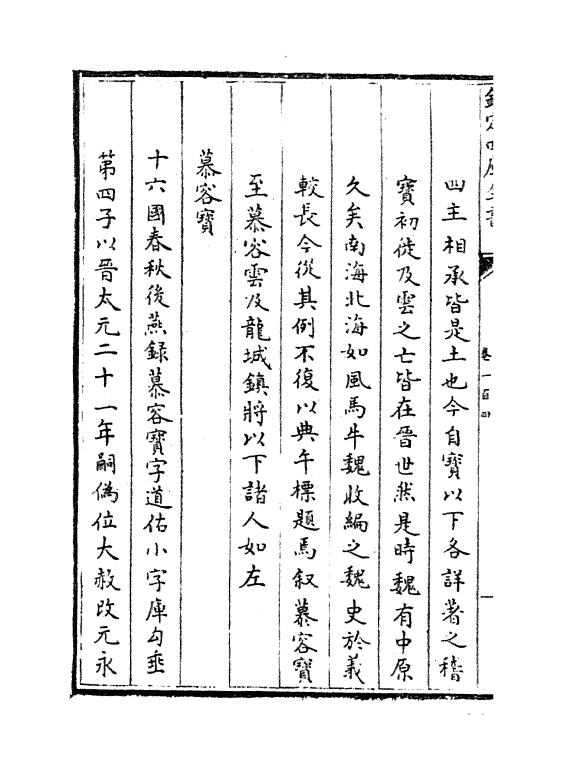 欽定四庫全書
卷一百四
一
四主相承皆是土也今自寶以下各詳著之稽
寶初徙及雲之亡皆在晉世然是時魏有中原
久矣南海北海如風馬牛魏收編之魏史於義
較長今從其例不復以典午標題焉叙慕容寶
至慕容雲及龍城鎮將以下諸人如左
慕容寶
十六國春秋後燕錄慕容寶字道佑小字庫勾垂
第四子以晉太元二十一年嗣偽位大赦改元永